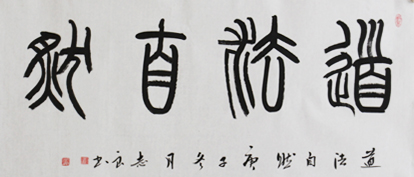 道法自然
道法自然 庚子冬月 志良书